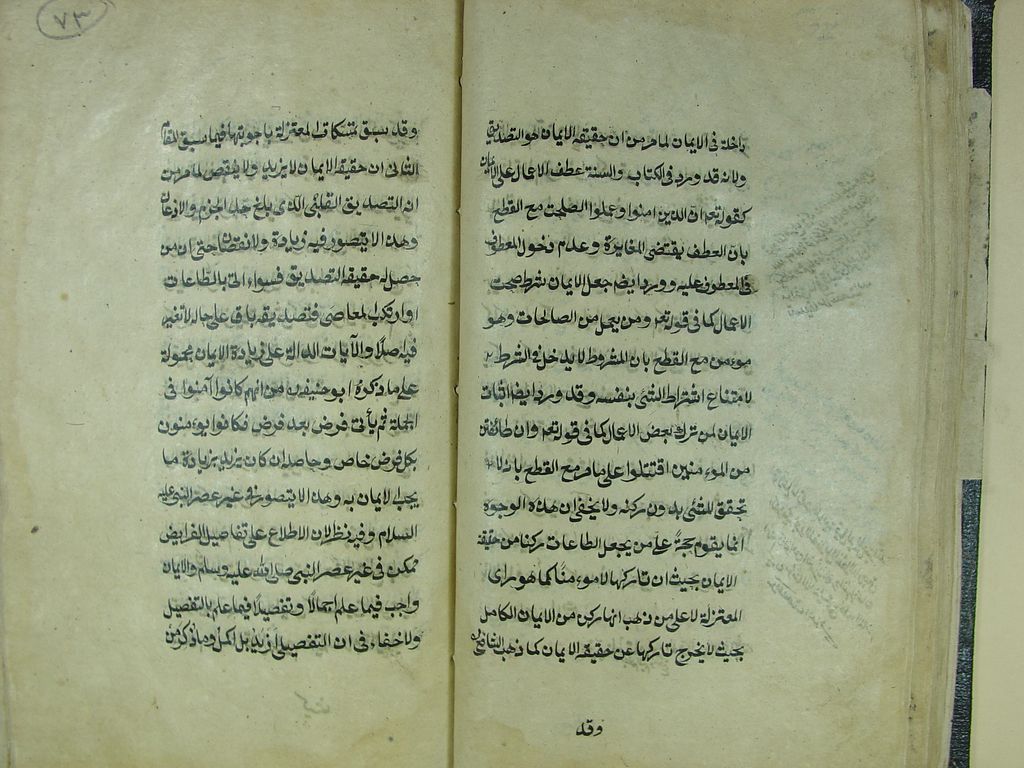 داخلة في الايمان لما مر من ان حقيقة الايمان هو التصديق
ولانه قد ورد في الكتاب والسنة عطف الاعمال على الايمان
كقوله تع ان الذين امنوا وعملوا الصلحت مع القطع
بان العطف يقتضى المغايرة وعدم دخول المعطوف
في المعطوف عليه وورد ايضا جعل الايمان شرط صحت
الاعمال كما في قوله تع ومن يعمل من الصالحات وهو
مومن مع القطع بان المشروط لا يدخل في الشرط
لامتناع اشتراط الشئ بنفسه وقد ورد ايضا اثبات
الايمان لمن ترك بعض الاعمال كما في قوله تع وان طائفتن
من المومنين اقتتلوا على ما مر مع القطع بانه لا
تحقق للشئ بدون ركنه ولا يخفى ان هذه الوجوه
انما يقوم حجة على من يجعل الطاعات ركنا من حقيقة
الايمان بحيث ان تاركها لا مومنا كما هو راى
المعتزلة لا على من ذهب انها ركن من الايمان الكامل
بحيث لا يخرج تاركها عن حقيقة الايمان كما ذهب الشافعى
وقد
٧٣
وقد سبق تمسكات المعتزلة باجوبتها فيما سبق المقام
الثانى ان حقيقة الايمان لا يزيد ولا ينقص لما مر من
انه التصديق القلبى الذى بلغ حد الجزم والاذعان
وهذا لا يتصور فيه زيادة ولا نقصان حتى ان من
حصل له حقيقة التصديق فسواء اتى بالطاعات
او ارتكب المعاصى فتصديقه باق على حاله لا تغير
فيه صلا والآيات الدالة على زيادة الايمان محمولة
على ما ذكره ابو حنيفة من انهم كانوا آمنوا فى
الجملة ثم يأتى فرض بعد فرض فكانوا يومنون
بكل فرض خاص وحاصله ان كان يزيد بزيادة ما
يجب الايمان به وهذا لا يتصور في غير عصر النبى عليه
السلام وفيه نظر لان الاطلاع على تفاصيل الفرايض
ممكن فى غير عصر النبى صلى الله عليه وسلم والايمان
واجب فيما علم اجمالا وتفصيلا فيما علم بالتفصيل
ولا خفاء فى ان التفصيلى ازيد بل اكمل وما ذكر من